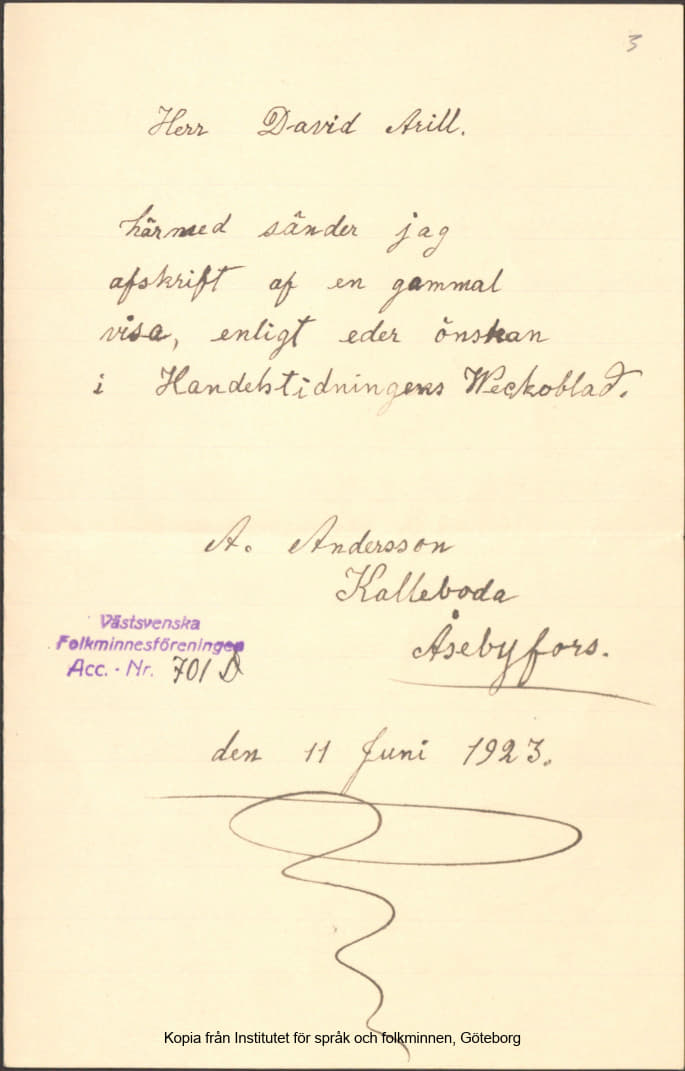 3
Herr David Arill.
härmed sänder jag
afskrift af en gammal
visa, enligt eder önskan
i Handelstidningens Weckoblad.
A. Andersson
Kalleboda
Åsebyfors.
Västsvenska
Folkminnesföreningen
Acc. - Nr. 701 D
den 11 Juni 1923.
Kopia från Institutet för språk och folkminnen, Göteborg